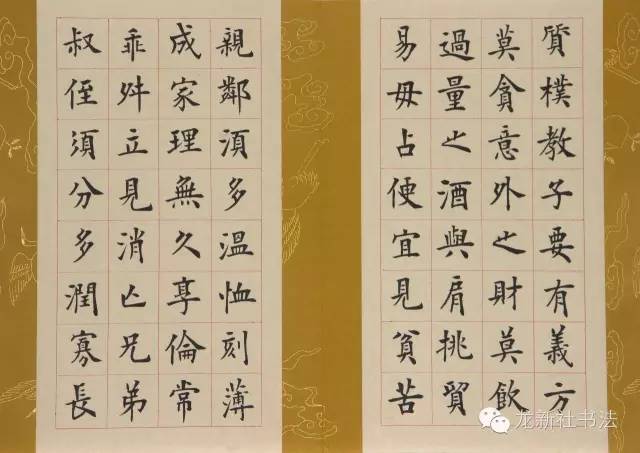 質樸教子要有義方
莫貪意外之財莫飲
過量之酒與肩挑貿
易毋占便宜見貧苦
親鄰湏多溫恤刻薄
成家理無久享倫常
乖舛立見消亡兄弟
叔侄須分多潤寡長
龙新社书法